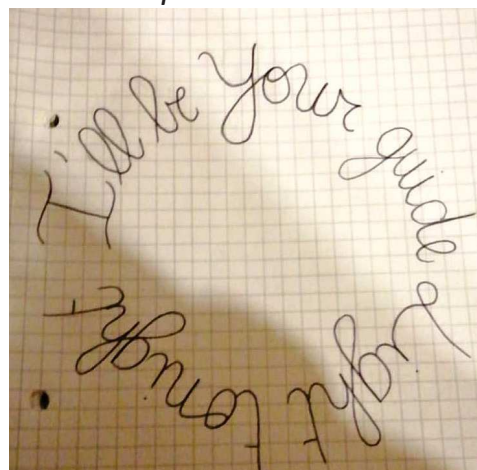 I'll be your guide light tonight